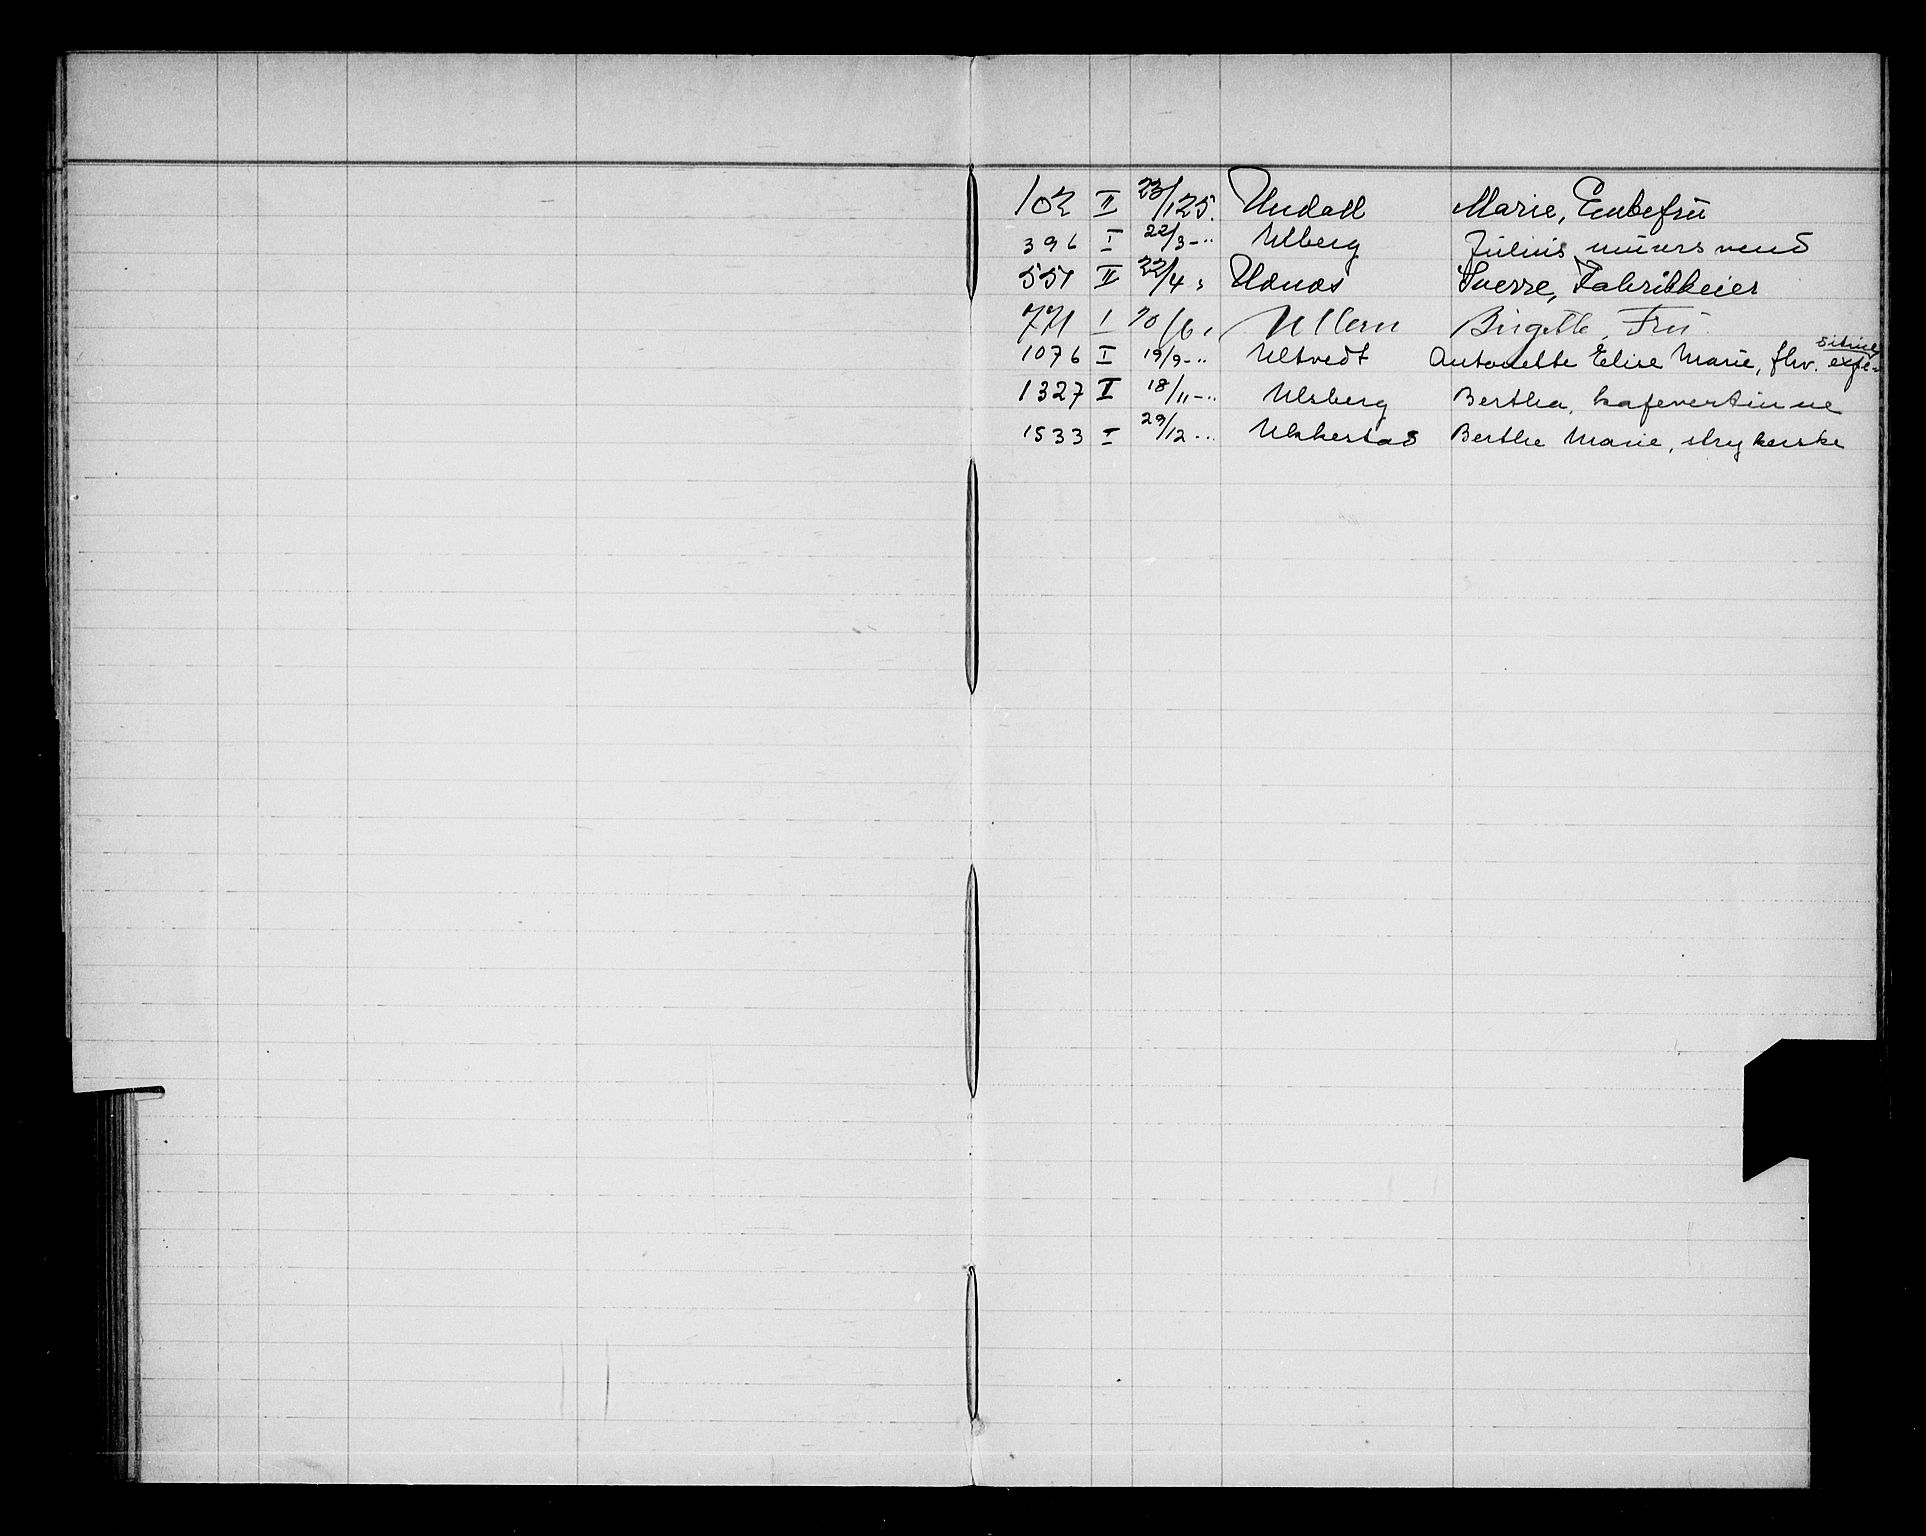 102 II 23/1 25. Undall Marie, Enkefru
396 I 22/3 -" Ulberg Julius murersvend
551 II 22/4 " Udnæs Sverre, Fabrikkeier
771 I 10/6, Ullern Birgitte, Fru
1076 I 19/9 -" Ultvedt Antonette Elise Marie, fhv. expe-
1327 I 18/11 -" Ulsberg Bertha, kafevertinne
1533 I 29/12 -" Ulkkestad Berthe Marie, strykerske